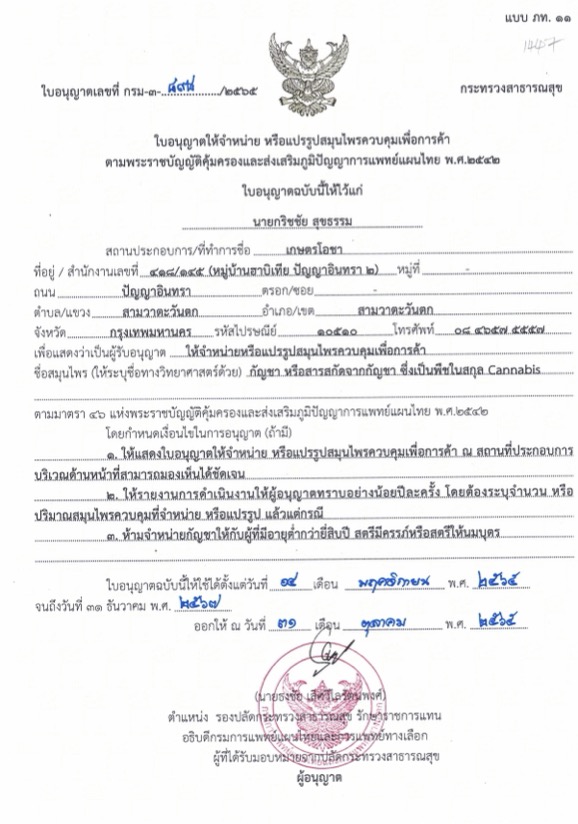 แบบ ภท. ๑๑
1447
ใบอนุญาตเลขที่ กรม-๓-........./๒๕๖๕
กระทรวงสาธารณสุข
ใบอนุญาตให้จำหน่าย หรือแปรรูปสมุนไพรควบคุมเพื่อการค้า
ตามพระราชบัญญัติคุ้มครองและส่งเสริมภูมิปัญญาการแพทย์แผนไทย พ.ศ.๒๕๔๒
ใบอนุญาตฉบับนี้ให้ไว้แก่
นายกริชชัย สุขธรรม
สถานประกอบการ/ที่ทำการชื่อ เกษตรโอชา
ที่อยู่ / สำนักงานเลขที่ ๔๑๘/๑๔๕ (หมู่บ้านฮาบิเทีย ปัญญาอินทรา ๒) หมู่ที่ -
ถนน ปัญญาอินทรา ตรอก/ซอย -
ตำบล/แขวง สามวาตะวันตก อำเภอ/เขต สามวาตะวันตก
จังหวัด กรุงเทพมหานคร รหัสไปรษณีย์ ๑๐๕๑๐ โทรศัพท์ ๐๘ ๔๖๕๗ ๕๕๕๗
เพื่อแสดงว่าเป็นผู้รับอนุญาต ให้จำหน่ายหรือแปรรูปสมุนไพรควบคุมเพื่อการค้า
ชื่อสมุนไพร (ให้ระบุชื่อทางวิทยาศาสตร์ด้วย) กัญชา หรือสารสกัดจากกัญชา ซึ่งเป็นพืชในสกุล Cannabis
ตามมาตรา ๔๖ แห่งพระราชบัญญัติคุ้มครองและส่งเสริมภูมิปัญญาการแพทย์แผนไทย พ.ศ.๒๕๔๒
โดยกำหนดเงื่อนไขในการอนุญาต (ถ้ามี)
๑. ให้แสดงใบอนุญาตให้จำหน่าย หรือแปรรูปสมุนไพรควบคุมเพื่อการค้า ณ สถานที่ประกอบการ
บริเวณด้านหน้าที่สามารถมองเห็นได้ชัดเจน
๒. ให้รายงานการดำเนินงานให้ผู้อนุญาตทราบอย่างน้อยปีละครั้ง โดยต้องระบุจำนวน หรือ
ปริมาณสมุนไพรควบคุมที่จำหน่าย หรือแปรรูป แล้วแต่กรณี
๓. ห้ามจำหน่ายกัญชาให้กับผู้ที่มีอายุต่ำกว่ายี่สิบปี สตรีมีครรภ์หรือสตรีให้นมบุตร
ใบอนุญาตฉบับนี้ให้ใช้ได้ตั้งแต่วันที่ ๑๔ เดือน พฤศจิกายน พ.ศ. ๒๕๖๕
จนถึงวันที่ ๓๑ ธันวาคม พ.ศ. ๒๕๖๗
ออกให้ ณ วันที่ ๓๑ เดือน ตุลาคม พ.ศ. ๒๕๖๕
(นายธงชัย เลิศวิไลรัตนพงศ์)
ตำแหน่ง รองปลัดกระทรวงสาธารณสุข รักษาราชการแทน
อธิบดีกรมการแพทย์แผนไทยและการแพทย์ทางเลือก
ผู้ที่ได้รับมอบหมายจากปลัดกระทรวงสาธารณสุข
ผู้อนุญาต